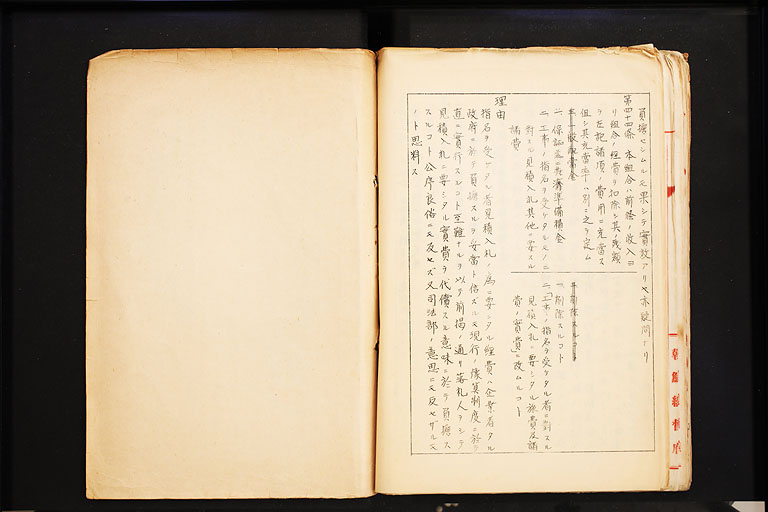 員擔セシムルモ果シテ實效アリヤ亦疑問ナリ
第四十四條 本組合ハ前條ノ收入ヨ
リ組合ノ經費ヲ扣除シ其ノ殘額
ヲ左記諸項ノ費用ニ充當ス
但シ其充當率ハ別ニ之ヲ定ム
一、一般配當金
一、保証並ニ共濟準備積金
二、工事ノ指名ヲ受ケタルモノニ
對スル見積入札其他ニ要スル
諸費
一、削除スルコト
二、「工事ノ指名ヲ受ケタル者ニ對スル
見積入札ニ要シタル旅費及諸
費ノ實費」ニ改ムルコト
理由
指名ヲ受ケタル者見積入札ノ為ニ要シタル經費ハ企業者タル
政府ニ於テ負擔スルヲ妥當ト信ズルモ現行ノ豫算制度ニ於テ
直ニ實行スルコト至難ナルヲ以テ前揭ノ通リ落札人ヲシテ
見積入札ニ要シタル實費ヲ代償スル意味ニ於テ負擔ス
スルコト公序良俗ニモ反セズ又司法部ノ意思ニモ反セザルモ
ノト思料ス